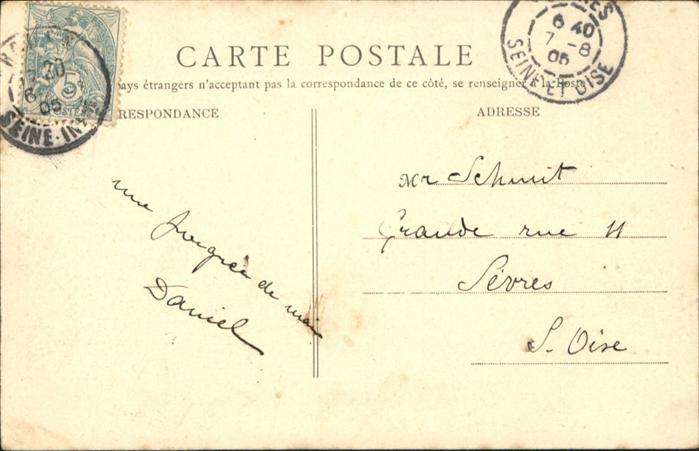 CARTE POSTALE
pays étrangers n'acceptant pas la correspondance de ce côté, se renseigner à la Poste
RESPONDANCE
ADRESSE
6 40
7-8
05
SEINE ET OISE
20
05
SEINE-IN
une poignée de main
Daniel
Mr Schmit
Grande rue 11
Sèvres
S. Oise